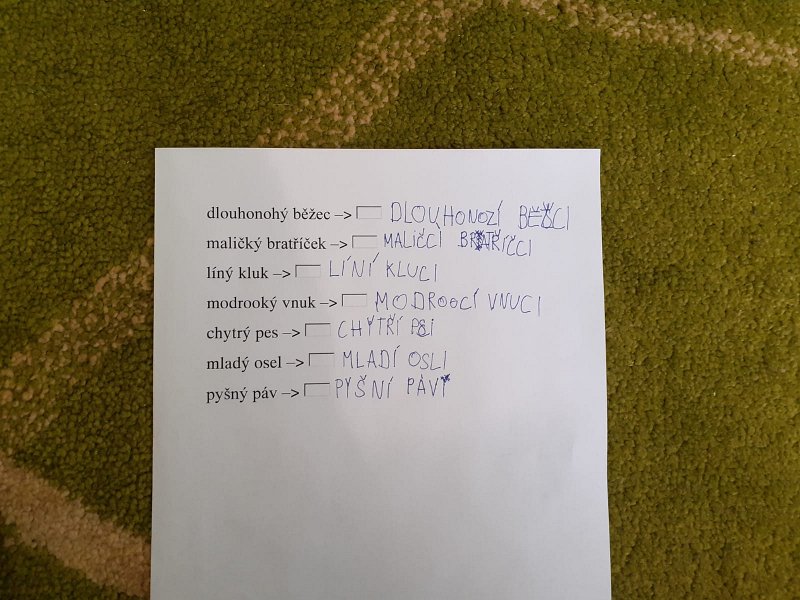 dlouhonohý běžec –> DLOUHONOZÍ BĚŽCI
maličký bratříček –> MALIČCÍ BRATŘÍČCI
líný kluk –> LÍNÍ KLUCI
modrooký vnuk –> MODROOCÍ VNUCI
chytrý pes –> CHYTŘÍ PSI
mladý osel –> MLADÍ OSLI
pyšný páv –> PYŠNÍ PÁVI